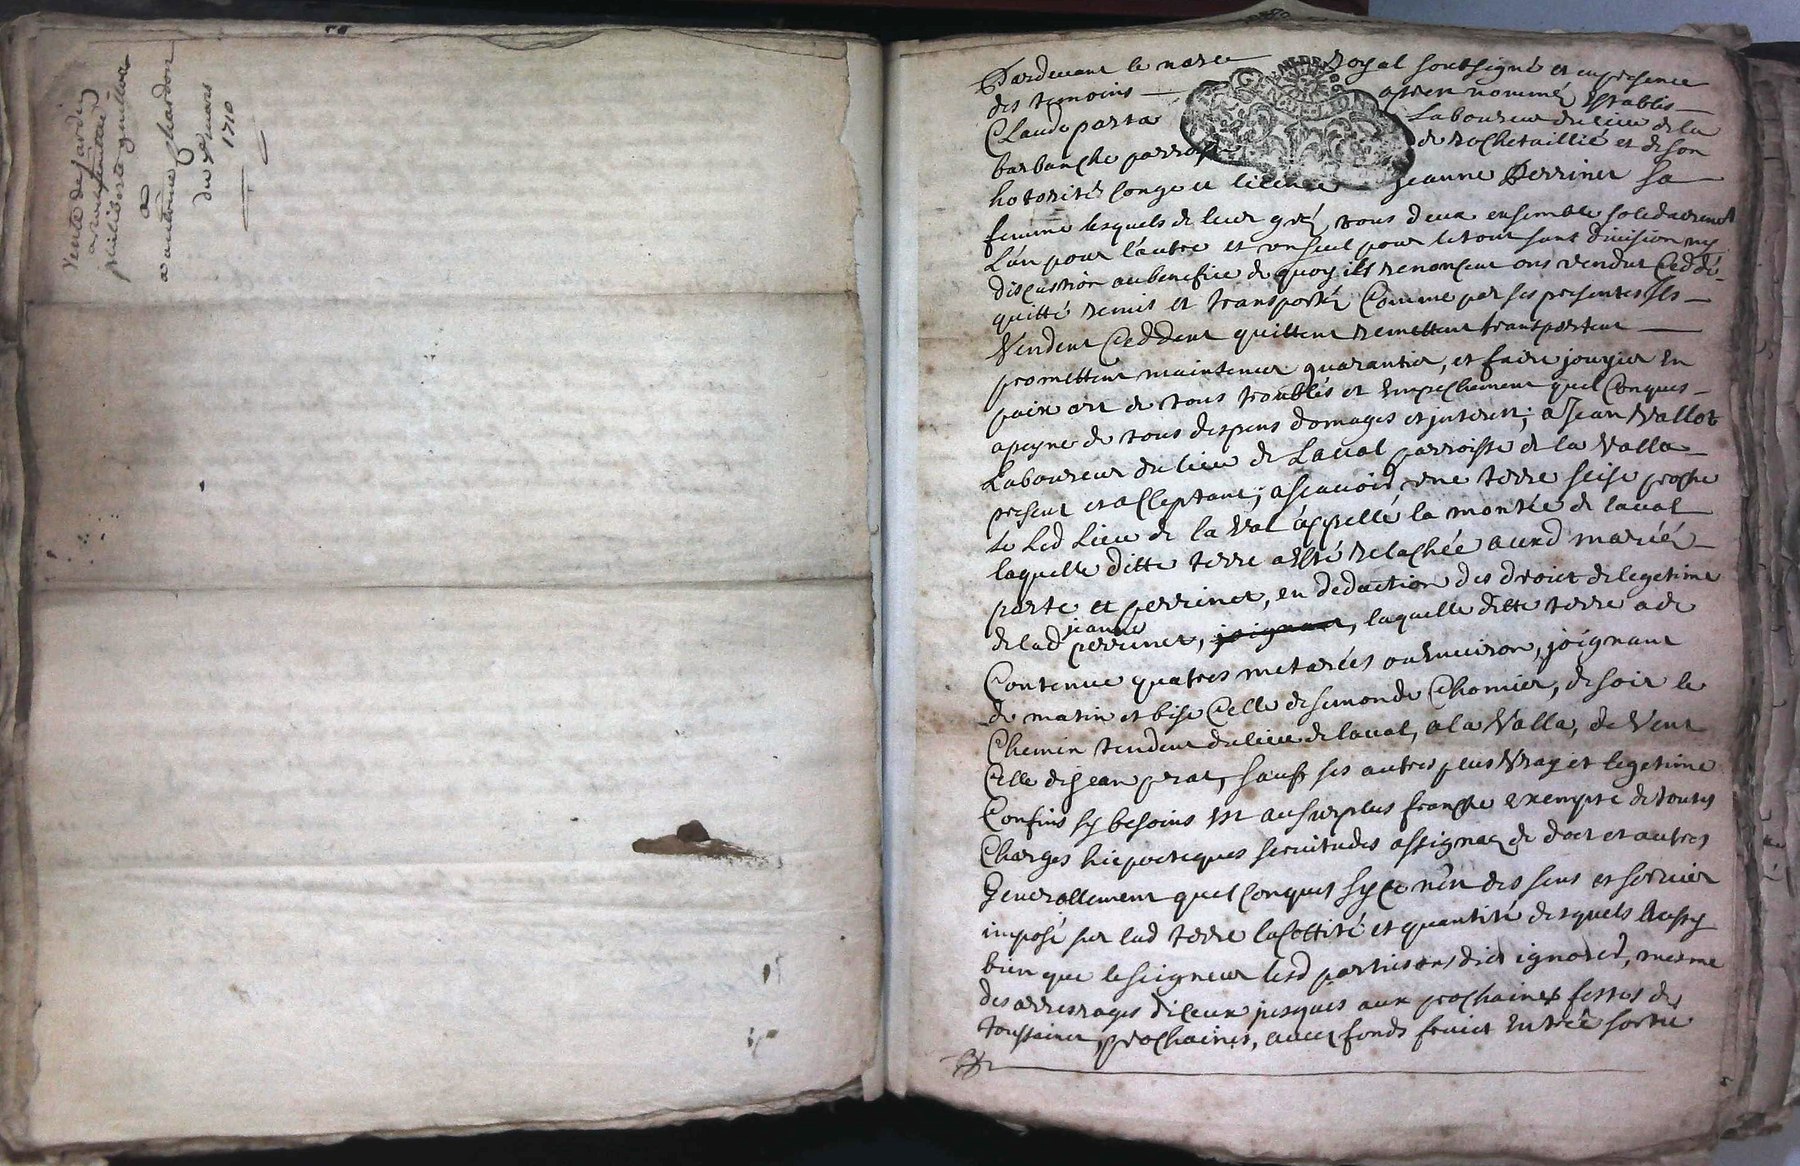 Vente de jardin
philiberte
a
anthoine chardon
du mars
1710
Pardevant le no.re Royal soubsigné et en presence
des temoins apres nommé Establis
Claude parta Laboureur du lieu de la
barbanche parroisse de Rochetaillié et de son
hotorité conge et licence Jeanne Perrinet sa
femme lesquels de leur gré, tous deux ensemble solidairement
L'un pour l'autre et un seul pour le tout sans division ny
discution au benefice de quoy ils renonseur ons vendut Ceddé
quitté remis et transporté Comme par ses presentes ils
Vendent Ceddent quittent remettent transportent
promettent maintenir guarantir, et faire jouyir En
paix et de tous troublés et Empechement quelConques
a peyne de tous despens domages et jnterest; a Jean Vallot
Laboureur du lieu de Laval parroisse de la Valla
present et acCeptant; a scauoir une terre scise proche
le Led Lieu de la Val appellé la montée de laval
laquelle ditte terre a Esté relachée aux d mariés
parte et perrinet, en deduction des droict de legetime
de lad jeanne perrinet, laquelle ditte terre a de
Contenue quatres metarées ou Enuiron, joignant
de matin et bise Celle de simonde Chomier, de soir le
Chemin tendent du lieu de laval, a la Valla, de Vent
Celle de jean prat, sauf ses autres plus Vray et legetime
Confins sy besoins Est au surplus franche exempte de toutes
Charges hiepoteques seruitudes assignaon de doct et autres
Generallement quelConques sy Ce n'en des sens et seruier
imposé sur lad terre la Cottité et quantité desquels Aussy
bien que le seigneur lesd parties ons dict ignorer, mesme
des arrerages diceux jusques aux prochaines festes de
toussaint prochaines, auec fonds fruict Entrée sortie